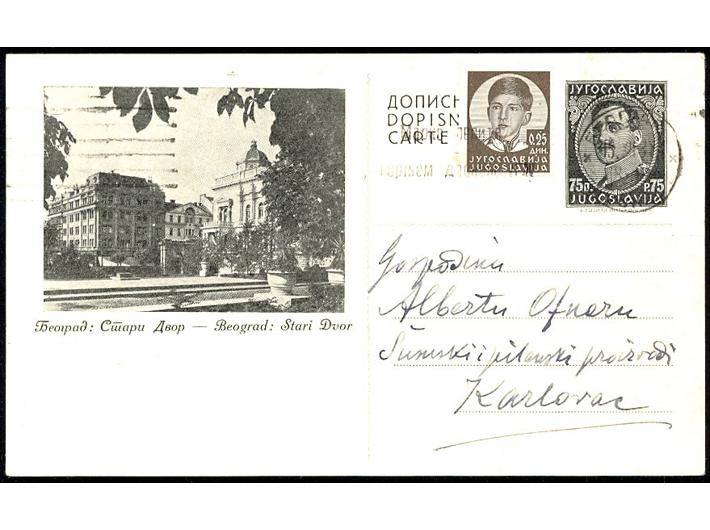 ДОПИСН
DOPISN
CARTE
0.25
ДИН.
ЈУГОСЛАВИЈА
JUGOSLAVIJA
ЈУГОСЛАВИЈА
75П. P.75
JUGOSLAVIJA
Београд: Стари Двор — Beograd: Stari Dvor
Gospodinu
Albertu Ofneru
Šumski i pilanski proizvodi
Karlovac